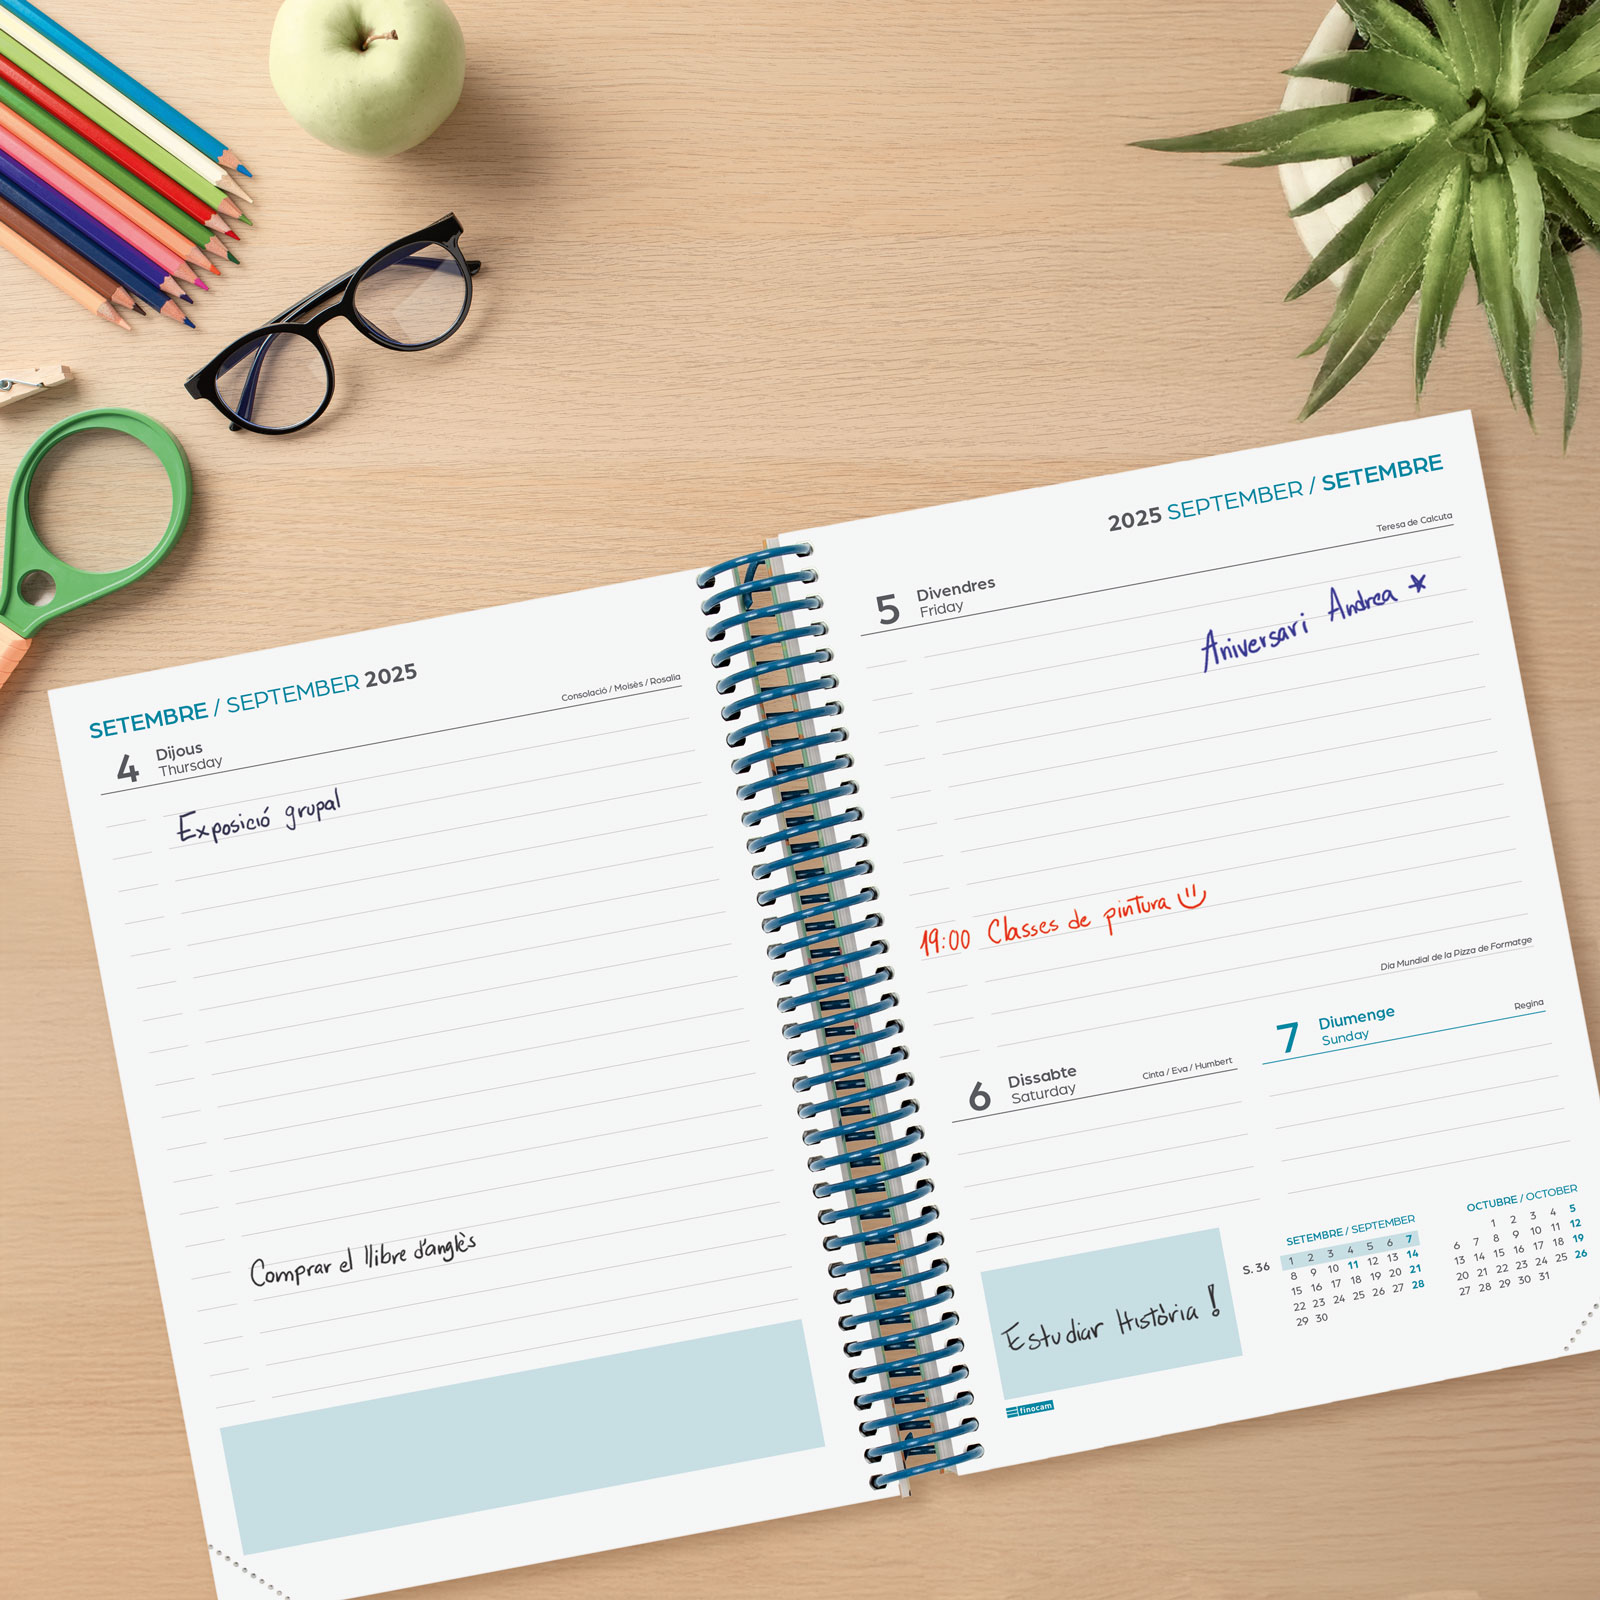 SETEMBRE / SEPTEMBER 2025
Consolació / Moisès / Rosalia
4 Dijous
Thursday
Exposició grupal
Comprar el llibre d'anglès
2025 SEPTEMBER / SETEMBRE
Teresa de Calcuta
5 Divendres
Friday
Aniversari Andrea
19:00 Classes de pintura
Dia Mundial de la Pizza de Formatge
6 Dissabte
Saturday
Cinta / Eva / Humbert
7 Diumenge
Sunday
Regina
Estudiar Història !
finocam
SETEMBRE / SEPTEMBER
S. 36 1 2 3 4 5 6 7
8 9 10 11 12 13 14
15 16 17 18 19 20 21
22 23 24 25 26 27 28
29 30
OCTUBRE / OCTOBER
1 2 3 4 5
6 7 8 9 10 11 12
13 14 15 16 17 18 19
20 21 22 23 24 25 26
27 28 29 30 31